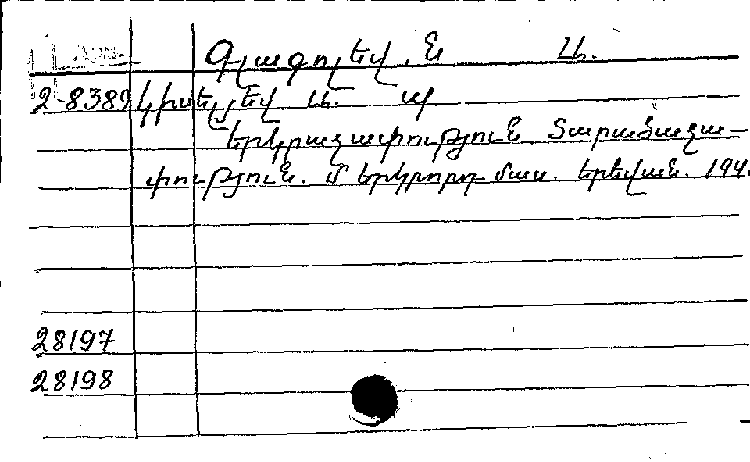 Գլագոլև. Ն Ա.
2-8389 Կիսելյև Ա. Պ
Երկրաչափություն Տարածաչա-
փություն. մ երկրորդ մաս. Երևան. 194.
28197
28198